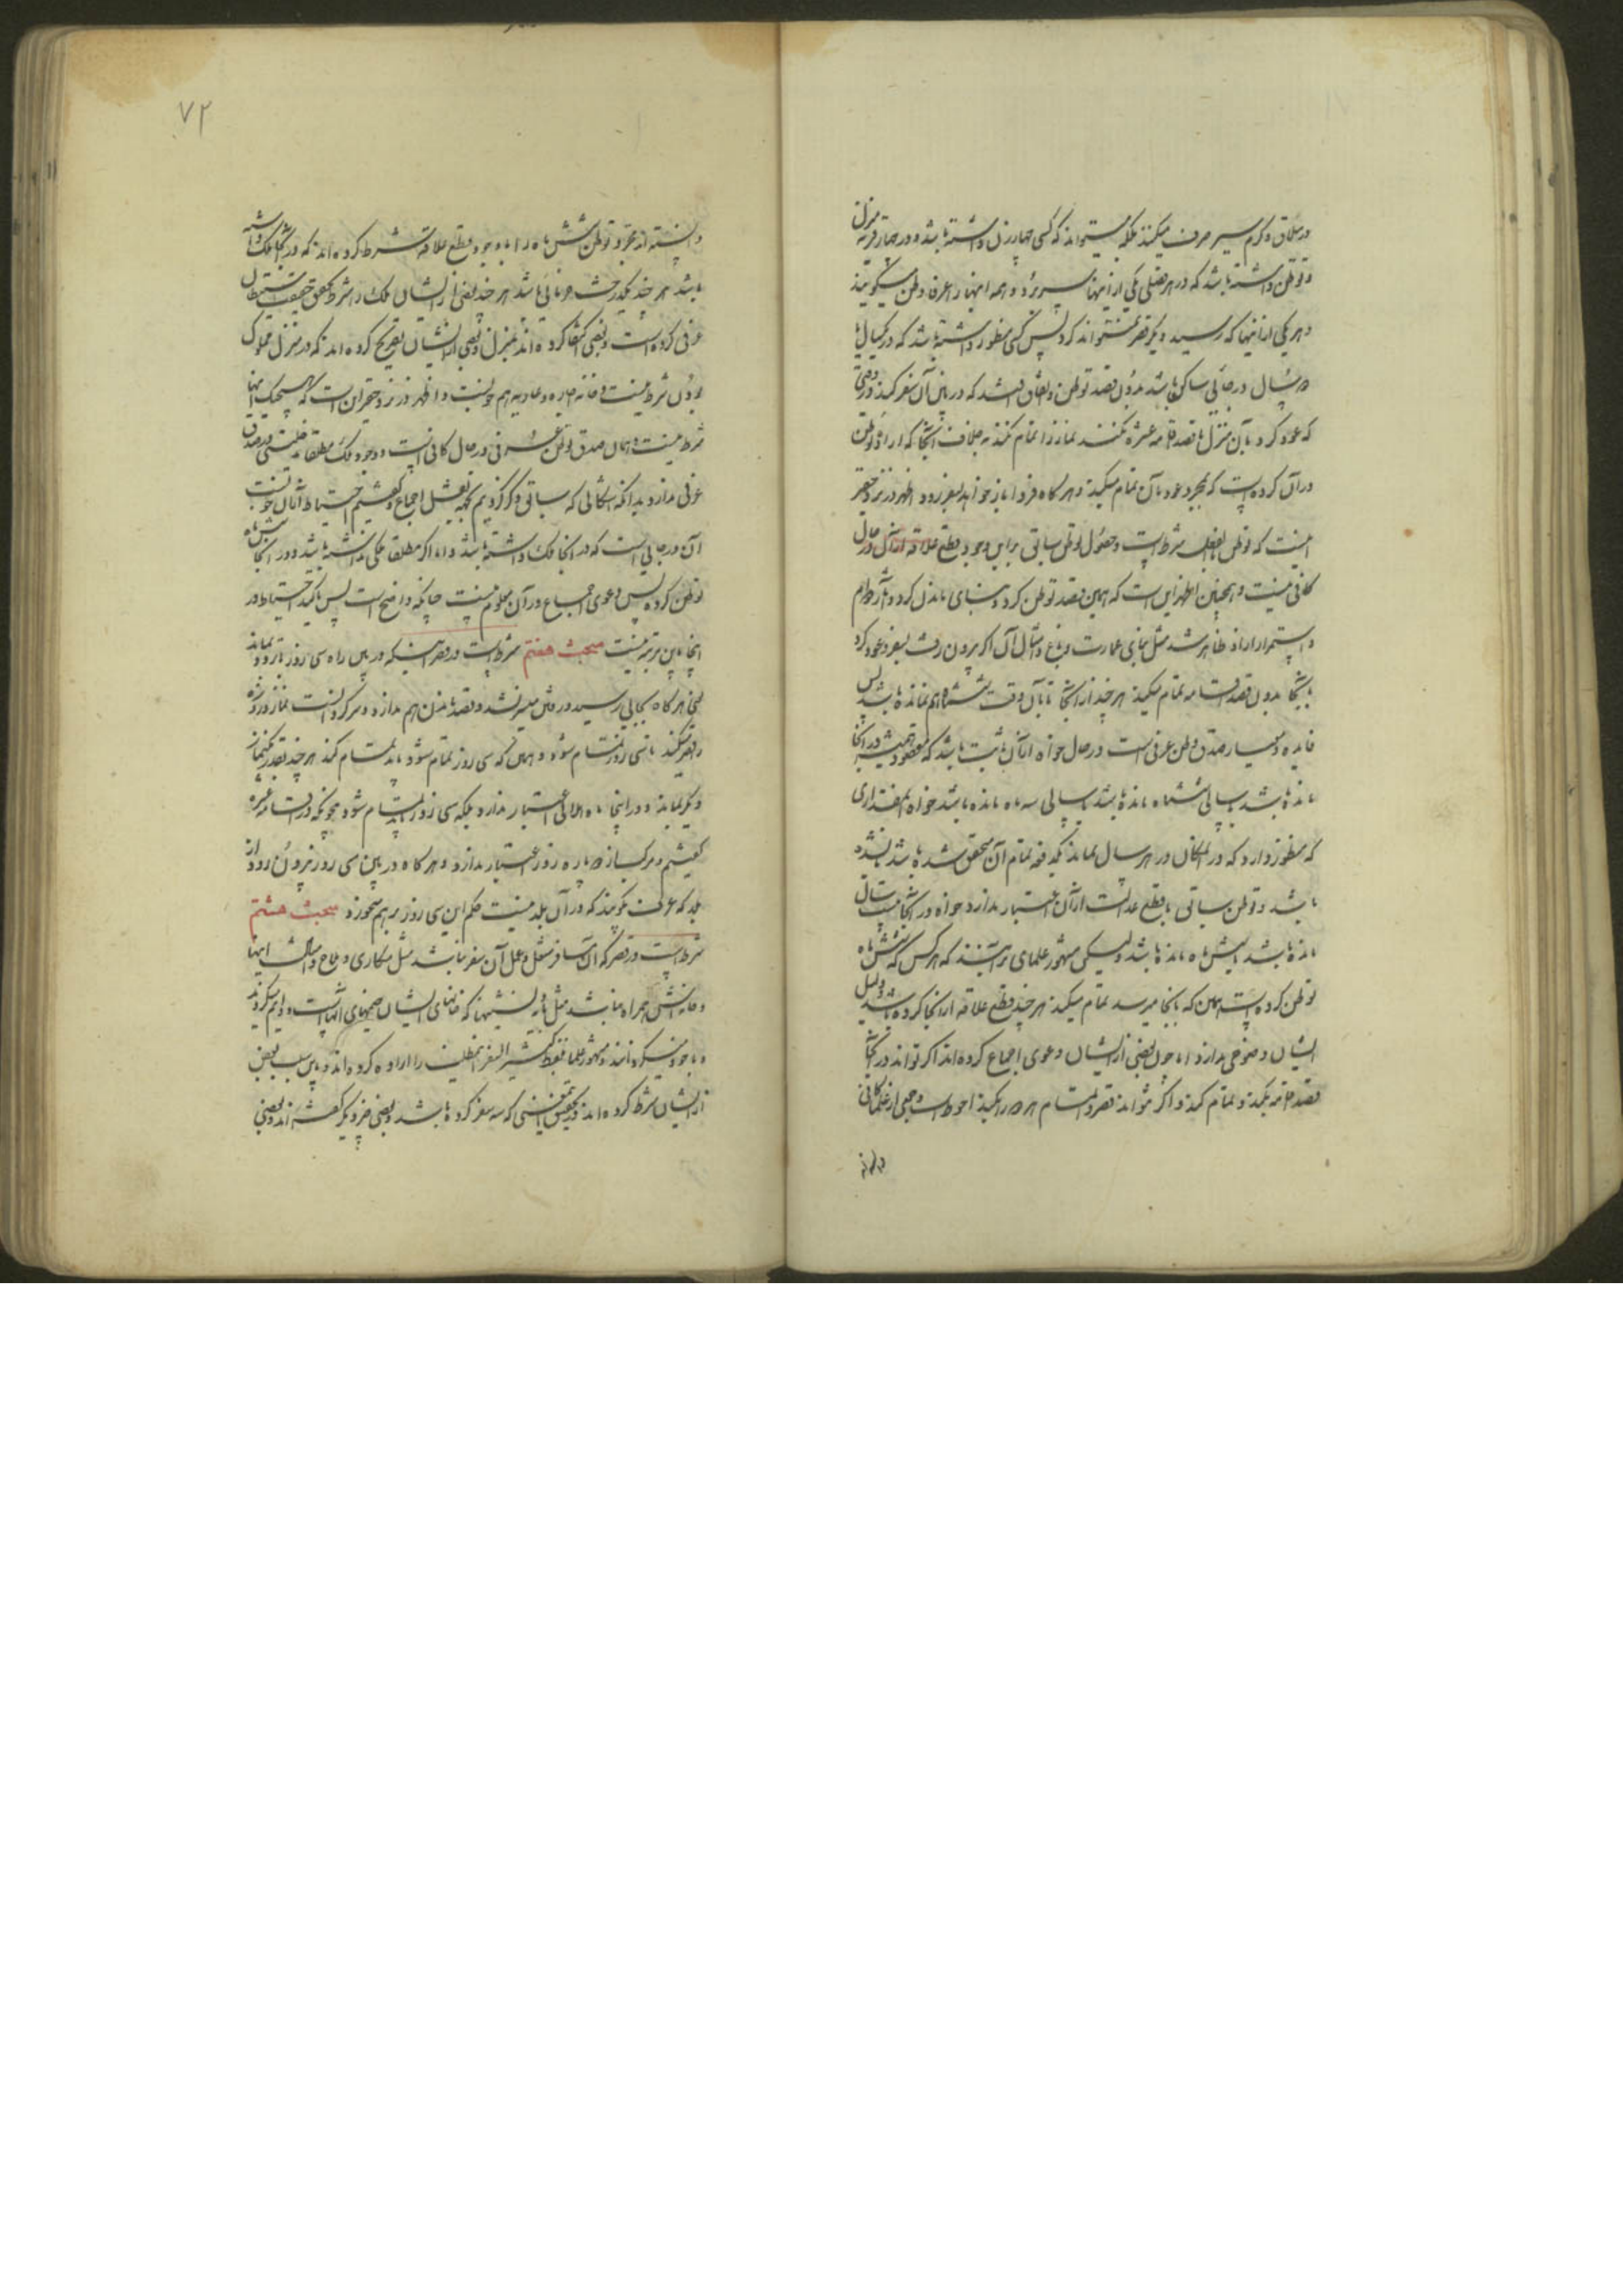 در ییلاق و گرم سیر صرف میکنند بلکه میتواند که کسی چهار زن داشته باشد و در چهار قریه منزل
و توطن داشته باشد که در هر فصلی یکی از اینها بسر برد و همه اینها را عرفا وطن میگویند
و هر یکی از اینها که رسید دیگر قصر نمیتواند کرد پس کسی منظور داشته باشد که در یکسال یا
دو سال در جائی ساکن باشد بدون قصد توطن و اتفاق افتد که در بین آن سفر کند و وقتی
که عود کرد بآن منزل تا قصد اقامه عشره نکند نماز را تمام نکند بخلاف آنجا که اراده توطن
در آن کرده است که بمجرد عود بآن تمام میکند و هر گاه فردا باز خواهد بسفر رود اظهر در نزد حقیر
اینست که توطن بالفعل شرط است و حصول توطن سابق بر این با وجود قطع علاقه از آن در حال
کافی نیست و همچنین اظهر این است که همین قصد توطن کرد و بنای ماندن کرد و آثار دوام
و استمرار از او ظاهر شد مثل بنای عمارت و باغ و امثال آن اگر بیرون رفت بسفر و عود کرد
بآنجا بدون قصد اقامه تمام میکند هر چند از آنجا تا بآن وقت ششماه هم نمانده باشد پس
فایده و معیار صدق وطن عرفی است در حال خواه آنا ثابت باشد که مقصود همیشه در آنجا
مانده باشد یا سالی ششماه مانده باشد یا سالی سه ماه مانده باشد خواه بمقداری
که منظور دارد که در آن مکان در هر سال بماند یکدفعه تمام آن متحقق شده باشد یا نشده
باشد و توطن سابق با قطع علاقه از آن اعتبار ندارد خواه در آنجا بیست سال
مانده باشد یا شش ماه مانده باشد ولیکن مشهور علما بر آنند که هر کس که شش ماه
توطن کرده است همین که بآنجا میرسد تمام میکند هر چند قطع علاقه از آنجا کرده باشد و دلیل
ایشان وضوحی ندارد اما چون بعضی از ایشان دعوی اجماع کرده‌اند اگر تواند در آنجا
قصد اقامه بکند و تمام کند و اگر نتواند قصر و اتمام هر دو را بکند احوط است و جمعی از علما کافی
دانسته
۷۲
دانسته‌اند مجرد توطن شش ماه را با وجود قطع علاقه شرط کرده‌اند که در آنجا ملک داشته
باشد هر چند یکدرخت خرمائی باشد هر چند بعضی از ایشان ملک را شرط تحقق حقیقت استیطان
عرفی کرده است و بعضی اکتفا کرده‌اند بمنزل و بعضی از ایشان تصریح کرده‌اند که در منزل مملوک
بودن شرط نیست و خانه اجاره و عاریه هم خوبست و اظهر در نزد حقیر آن است که هیچیک اینها
شرط نیست و همان صدق وطن عرفی در حال کافی است و وجود ملک مطلقا مدخلیتی در صدق
عرفی ندارد بدانکه اشکالی که سابق ذکر کردیم بجهة نقل اجماع و گفتیم احتیاط در آن خوبست
آن در جایی است که در آنجا ملک داشته باشد و اما اگر مطلقا ملکی نداشته باشد و در آنجا شش ماه
توطن کرده پس دعوی اجماع در آن معلوم نیست چنانکه واضح است پس تاکید احتیاط در
اینجا باین مرتبه نیست مبحث هفتم شرط است در قصر اینکه در بین راه سی روز با تردد نماند
یعنی هر گاه بجایی رسید و رفتن میسر نشد و قصد ماندن هم ندارد و سرگردانست نماز و روزه
را قصر میکند تا سی روز تمام شود و همان که سی روز تمام شود باید اتمام کند هر چند بقدر یک نماز
دیگر بماند و در اینجا ماه هلالی اعتبار ندارد بلکه سی روز باید تمام شود همچنانکه در اقامه عشره
گفتیم و مرکب از دو پاره روز اعتبار ندارد و هر گاه در بین سی روز بیرون رود از
بلد که عرف نگویند که در آن بلد نیست حکم این سی روز بر هم نمیخورد مبحث هشتم
شرط است در قصر که آن مسافر شغل و عمل آن سفر نباشد مثل مکاری و ملاح و امثال اینها
و خانه‌اش همراه نباشد مثل بادیه نشینها که خانهای ایشان خیمهای آنهاست و دایم میگردند
و با خود میگردانند و مشهور علما بلفظ کثیر السفر این مطلب را ارده کرده‌اند و باین سبب بعضی
از ایشان شرط کرده‌اند در تحقق این معنی که سه سفر کرده باشد و بعضی چیز دیگر گفته‌اند و بعضی